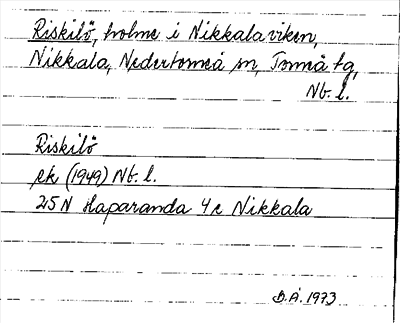 Riskilö, holme i Nikkalaviken,
Nikkala, Nedertorneå sn, Torneå tg,
Nb. l.
Riskilö
ek (1949) Nb. l.
25 N Haparanda 4c Nikkala
B.Å. 1973